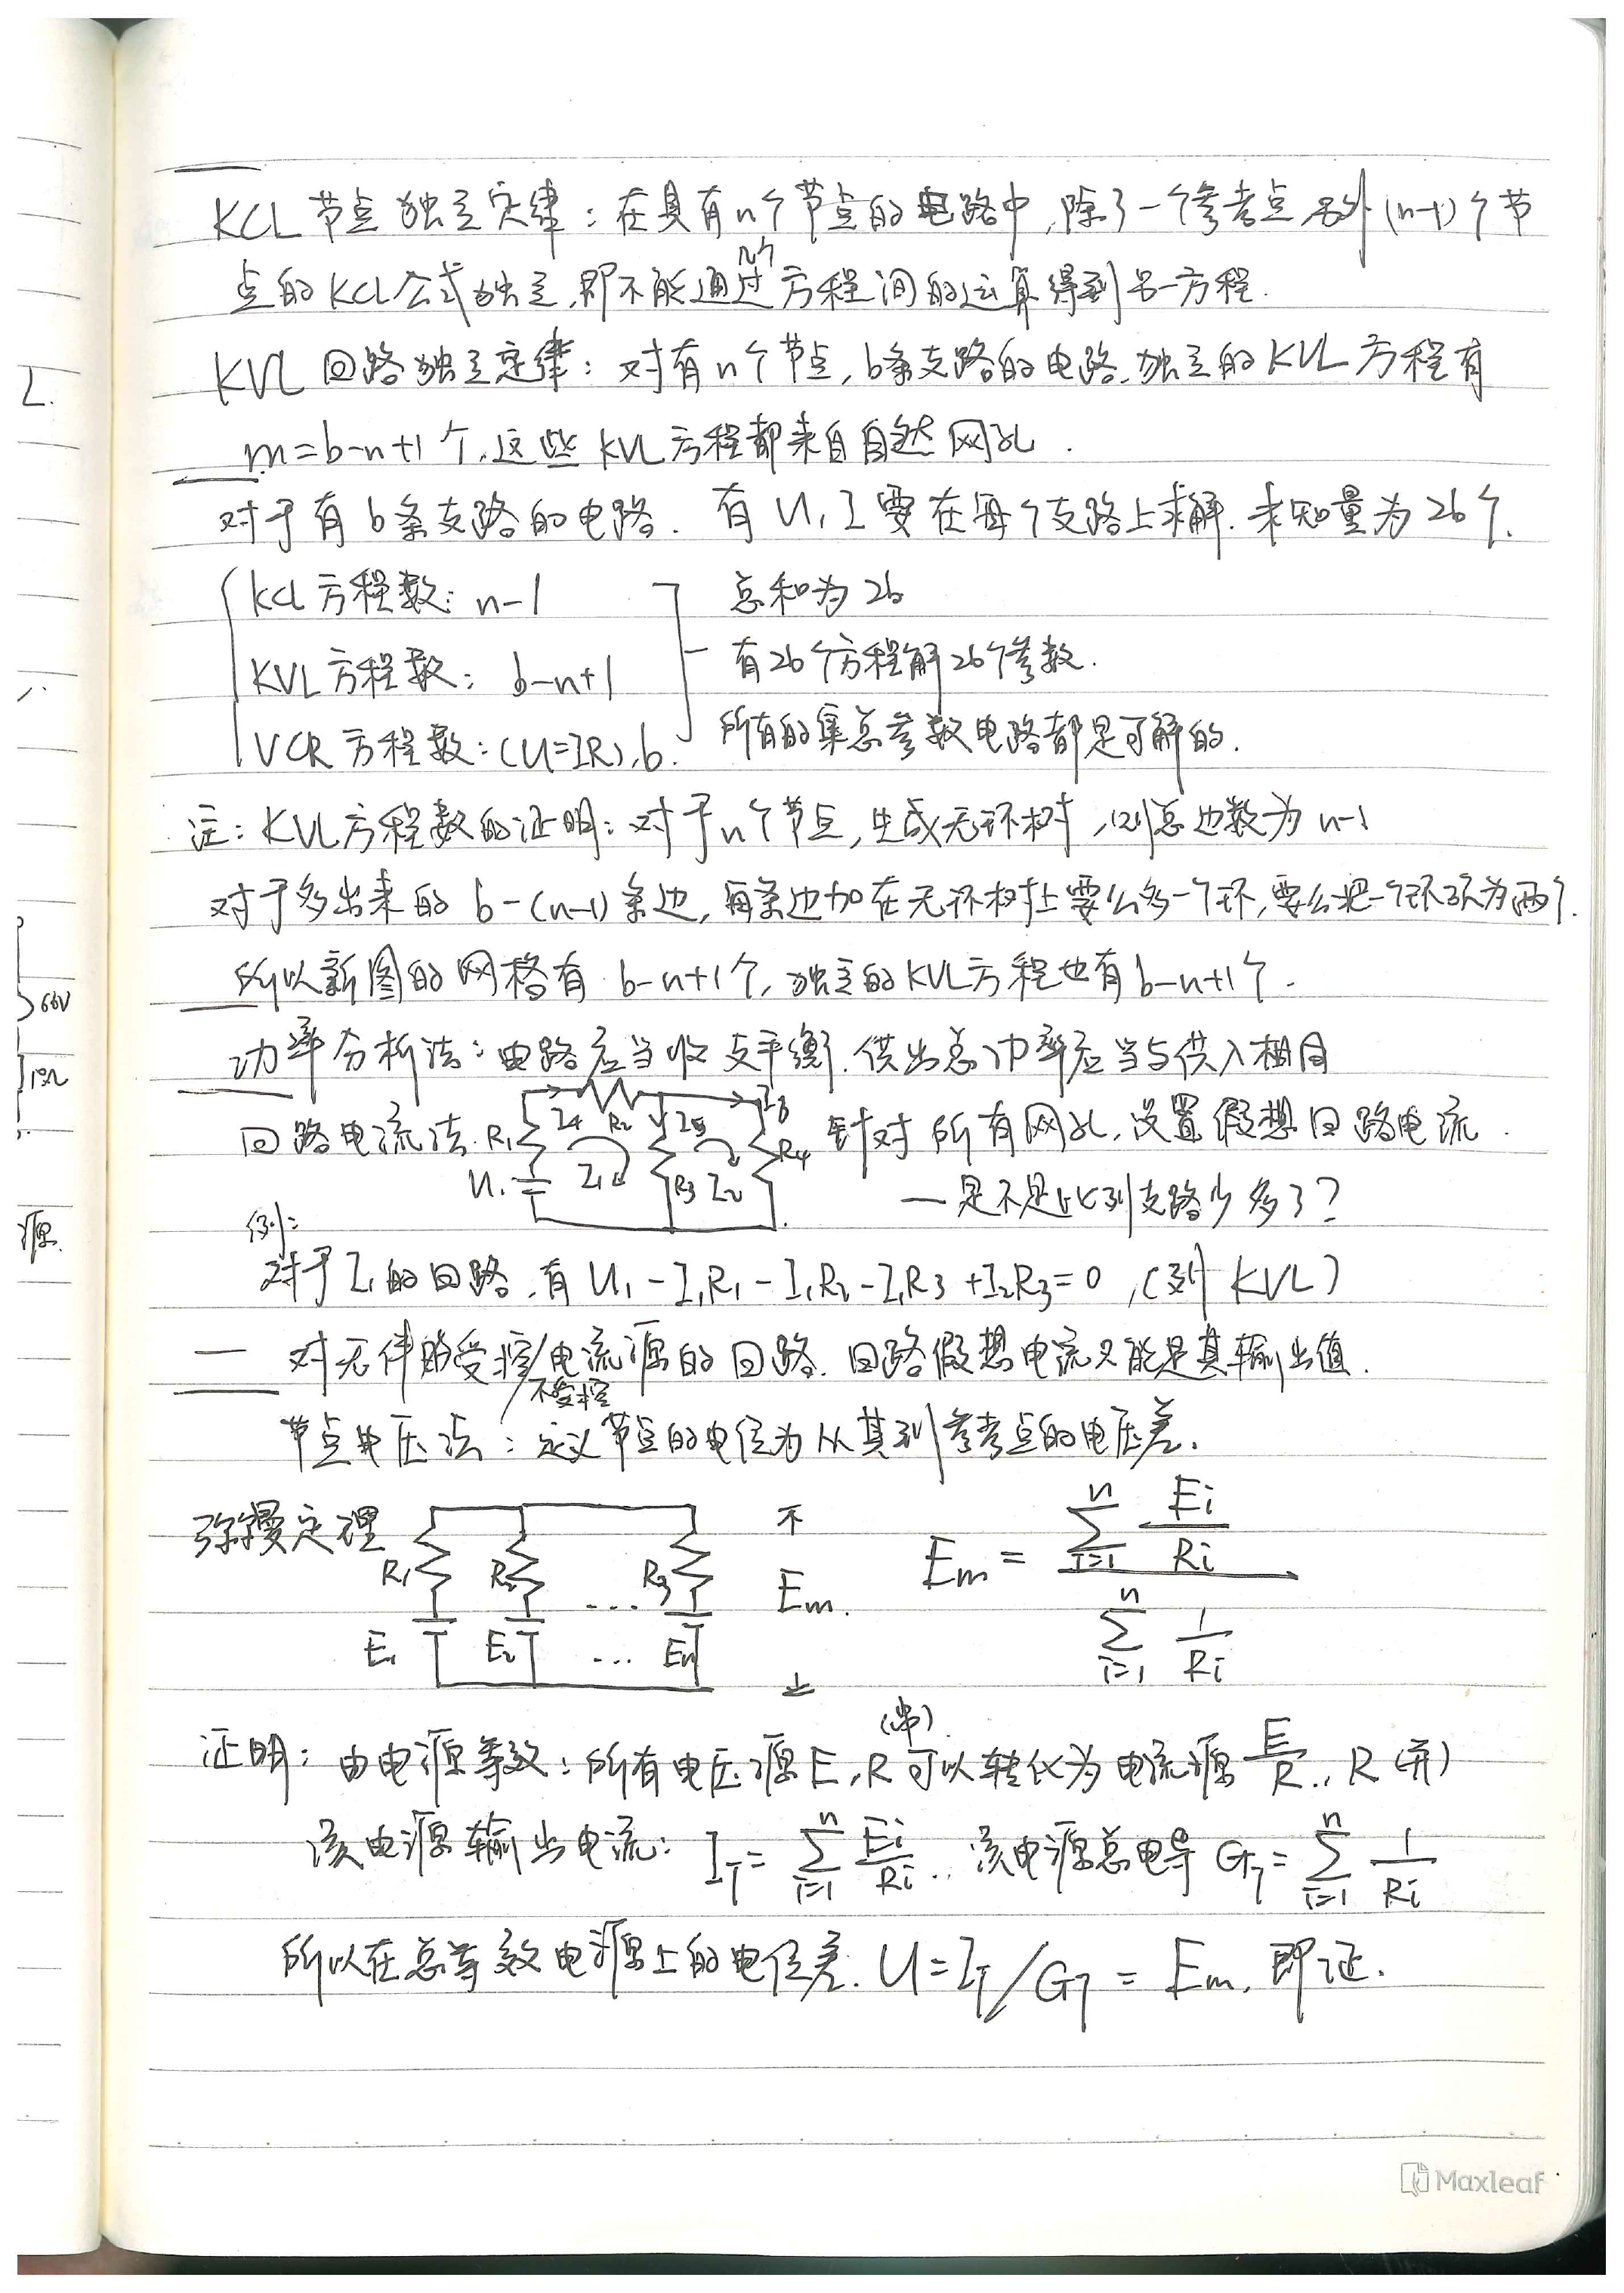 KCL 节点独立定律：在具有n个节点的电路中，除了一个参考点另外(n-1)个节
几个
点的KCL公式独立，即不能通过方程间的运算得到另一方程.
KVL 回路独立定律：对有n个节点，b条支路的电路，独立的KVL方程有
L.
m=b-n+1个，这些KVL方程都来自自然网孔.
对于有b条支路的电路. 有U, I要在每个支路上求解. 未知量为2b个.
KCL方程数: n-1 总和为2b
KVL方程数: b-n+1 有2b个方程解2b个参数.
VCR方程数: (U=IR), b. 所有的集总参数电路都是可解的.
注：KVL方程数的证明：对于n个节点，生成无环树，则总边数为n-1
对于多出来的b-(n-1)条边，每条边加在无环树上要么多一个环，要么把一个环改为两个.
所以新图的网格有b-n+1个，独立的KVL方程也有b-n+1个.
66V
功率分析法：电路应当收支平衡. 供出总功率应当与供入相同
回路电流法. R₁ U₁ I₄ R₂ I₅ I₆ I₁ R₃ I₂ R₄ 针对所有网孔，设置假想回路电流.
—是不是比列支路少多了?
源.
例：
对于I₁的回路，有U₁-I₁R₁-I₁R₂-I₁R₃+I₂R₃=0, (列KVL)
— 对无伴的受控/不受控电流源的回路. 回路假想电流只能是其输出值.
节点电压法：定义节点的电位为从其到参考点的电压差.
弥尔曼定理 R₁ R₂ ... R₃ Em. Em = \frac{\sum_{i=1}^{n} \frac{Ei}{Ri}}{\sum_{i=1}^{n} \frac{1}{Ri}}
E₁ E₂ ... En
证明：由电源等效：所有电压源E, R(串)可以转化为电流源\frac{E}{R}, R(并)
该电源输出电流: I_T=\sum_{i=1}^{n} \frac{Ei}{Ri}. 该电源总电导G_T=\sum_{i=1}^{n} \frac{1}{Ri}
所以在总等效电源上的电位差. U=I_T/G_T=Em. 即证.
Maxleaf